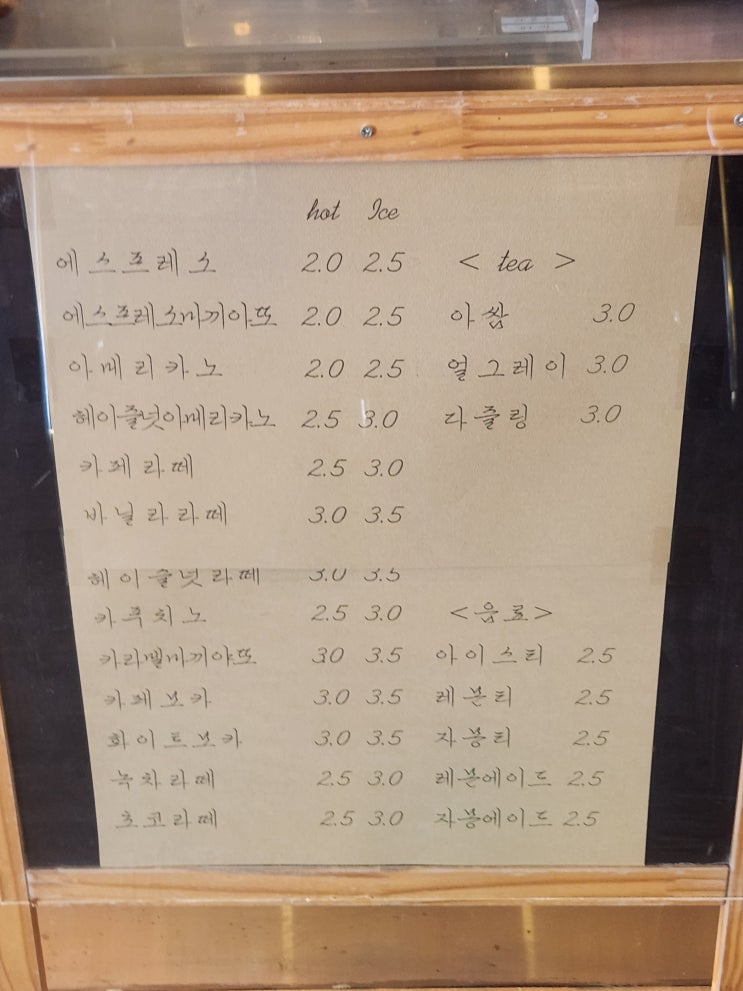 hot Ice
에스프레소 2.0 2.5 < tea >
에스프레소마끼아또 2.0 2.5 아쌈 3.0
아메리카노 2.0 2.5 얼그레이 3.0
헤이즐넛아메리카노 2.5 3.0 다즐링 3.0
카페라떼 2.5 3.0
바닐라라떼 3.0 3.5
헤이즐넛라떼 3.0 3.5
카푸치노 2.5 3.0 <음료>
카라멜마끼야또 3.0 3.5 아이스티 2.5
카페모카 3.0 3.5 레몬티 2.5
화이트모카 3.0 3.5 자몽티 2.5
녹차라떼 2.5 3.0 레몬에이드 2.5
초코라떼 2.5 3.0 자몽에이드 2.5